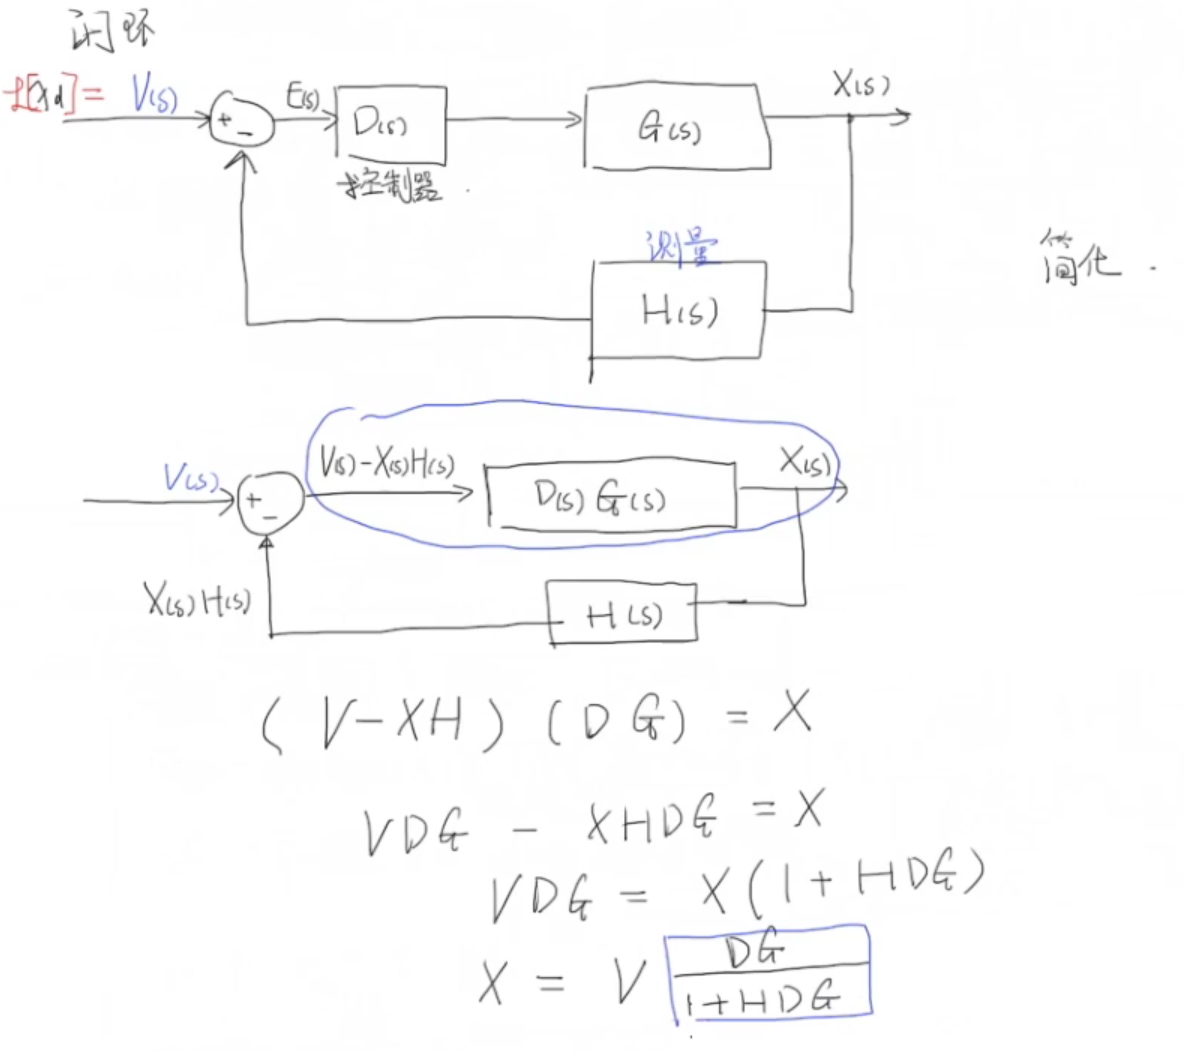 闭环
ℒ[Xd] = V(s)
+
-
E(s)
D(s)
控制器
G(s)
X(s)
测量
H(s)
简化.
V(s)
+
-
V(s)-X(s)H(s)
D(s) G(s)
X(s)
X(s)H(s)
H(s)
(V-XH) (DG) = X
VDG - XHDG = X
VDG = X(1+HDG)
X = V DG / 1+HDG